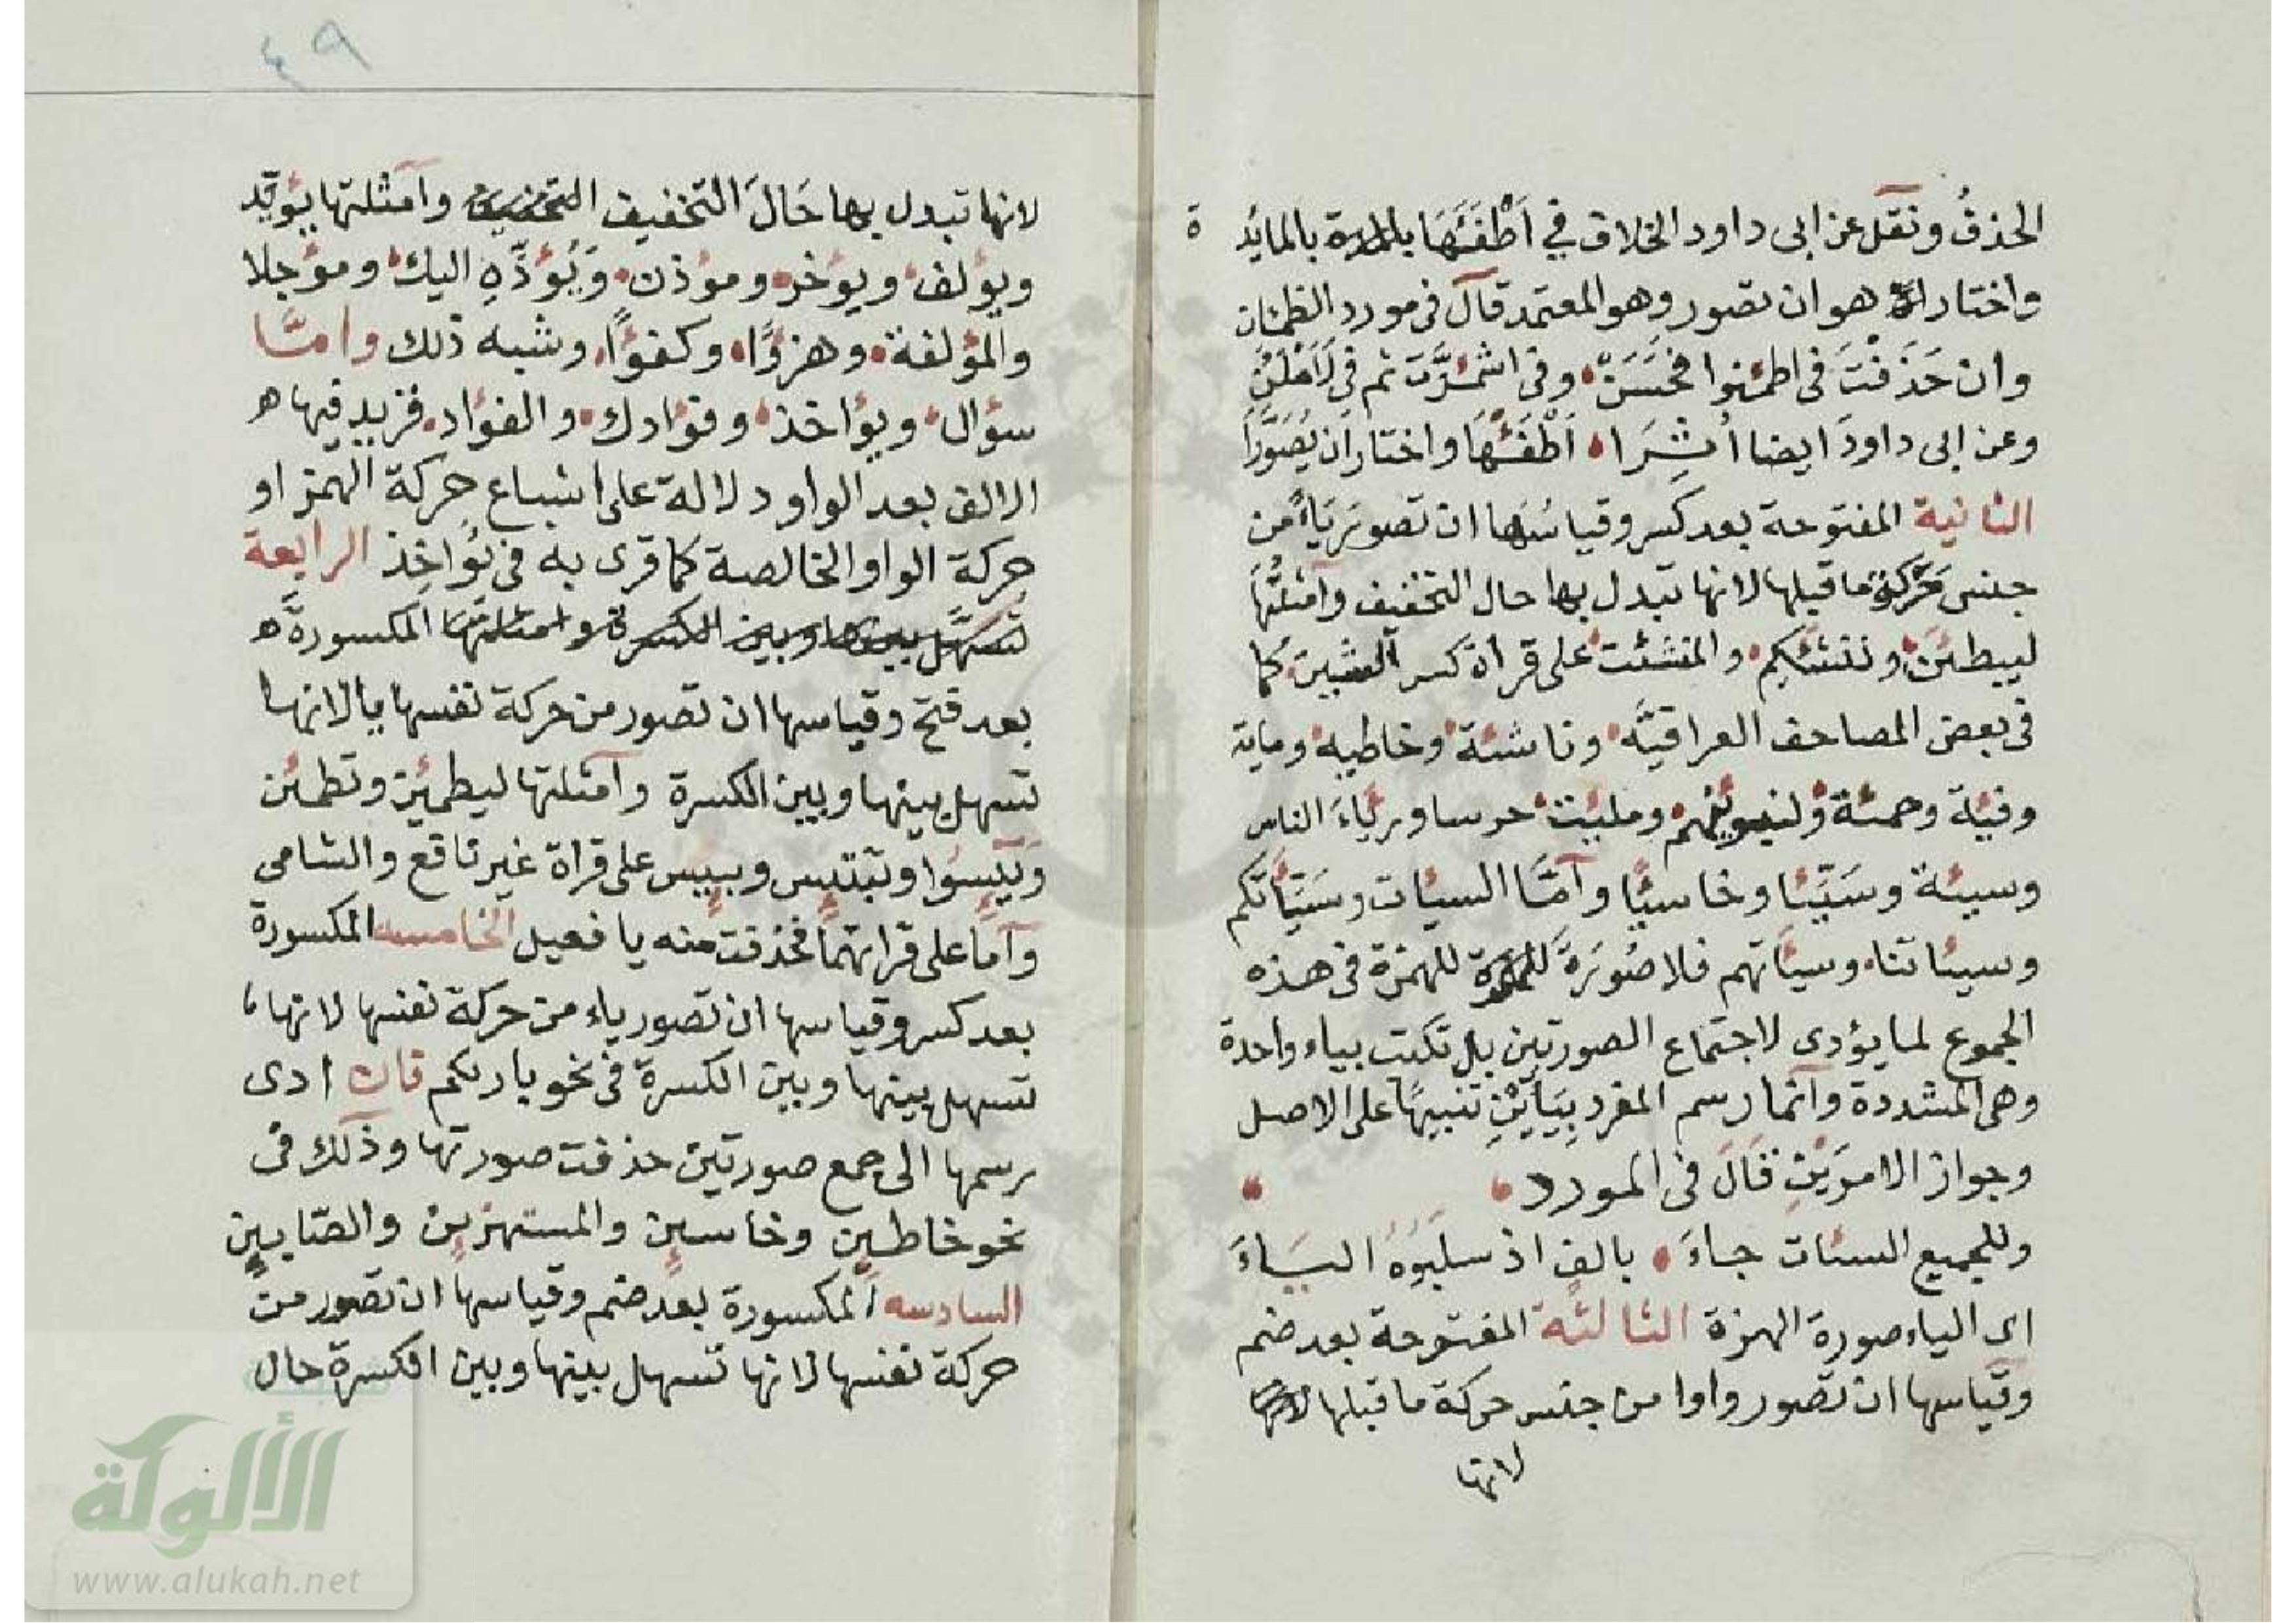 الحذفُ ونقل عن ابى داود الخلاف في اَطْفَئَهَا بالمائد ة
واختار هو ان تصور وهو المعتمد قال فى مورد الظمئان
وان حَذَفْتَ فى اطمئنوا فحَسَنْ وفى اشمئزَّت ثم فى لَاَمْلَئَنَّ
وعن ابى داود ايضا اُثِرَا اَطْفَئَهَا واختار ان يُصَوَّرَا
الثانية المفتوحة بعد كسر وقياسُها ان تصور يَاءً من
جنس حركة ما قبلها لانها تبدل بها حال التخفيف وامثلتُها
ليبطئَن وننشئكم والمنشئت على قراة كسر الشين كما
فى بعض المصاحف العراقيَّه وناشئة وخاطيه وماية
وفيئة وحمئة ولنبوئنهم ومليئت حرسا وريَاءَ الناس
وسيئة وسَيّئا وخاسئا وامَّا السيئات وسَيّئاتكم
وسيئاتنا وسيئاتهم فلا صُورَةَ للهمزة فى هذه
الجموع لما يؤدى لاجتماع الصورتين بل تكتب بياء واحدة
وهى المشددة وانما رسم المفرد بِيَاءَيْنِ تنبيهًا على الاصل
وجواز الامرَيْنِ قَالَ فى المورد
وللجميع السئات جاءَ بالف اذ سلبَوُهُ اليَاءَ
اى الياء صورة الهمزة الثالثة المفتوحة بعد ضم
وقياسها ان تصور واوا من جنس حركة ما قبلها
لانها
٤٩
لانها تبدل بها حَالَ التخفيف وامثلتها يؤيّد
ويؤلف ويؤخر ومؤذن وَيُؤدِّهِ اليك ومؤجلا
والمؤلفة وهزؤًا وكفؤًا وشبه ذلك وامَّا
سؤال ويؤاخذ وفؤادك والفؤاد فزيد فيها ه
الالف بعد الواو دلالة على اشباع حركة الهمز او
حركة الواو الخالصة كما قرى به فى نُوَاخِذ الرابعة
تسهل بينها وبين الكسرة وامثلتها المكسورة ه
بعد فتح وقياسها ان تصور من حركة نفسها يا لانها
تسهل بينها وبين الكسرة وامثلتها ليطمئن وتطمئن
وَيَئِسُوا وتبتئس وبييس على قراة غير نافع والشامى
وامَّا على قراتهما فحذفت منه يا فعيل الخامسه المكسورة
بعد كسر وقياسها ان تصور ياء من حركة نفسها لانها
تسهل بينها وبين الكسرة فى نحو باريكم فان ادى
رسمها الى جمع صورتين حذفت صورتها وذلك فى
نحو خاطين وخاسين والمستهزين والصّابين
السادسه المكسورة بعد ضم وقياسها ان تصور من
حركة نفسها لانها تسهل بينها وبين الكسرة حال
شبكة
الألوكة
www.alukah.net